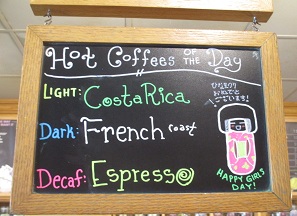 Hot Coffees OF THE Day
LIGHT: Costa Rica
Dark: French roast
Decaf: Espresso
おめでと
ございます!
HAPPY GIRLS
DAY!